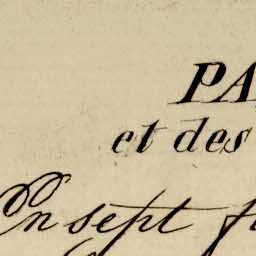 PA
et des
En sept f